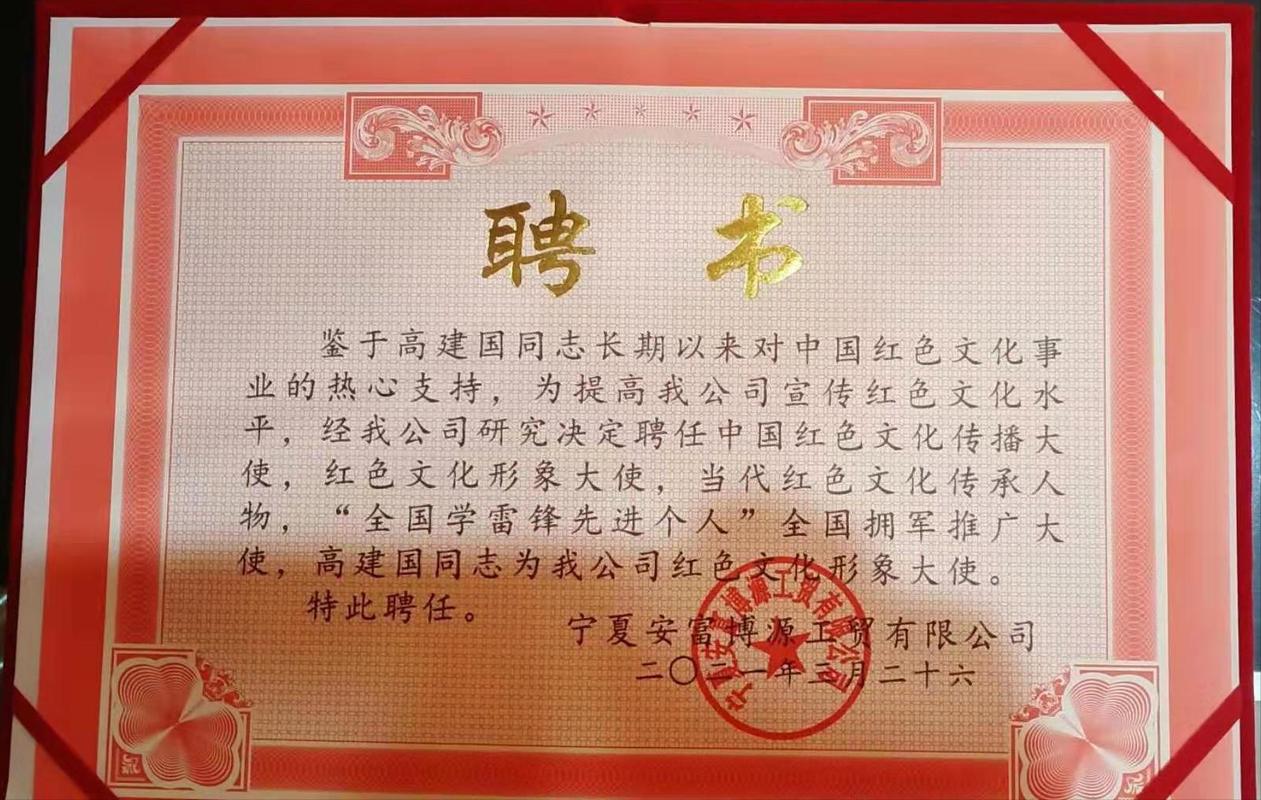 聘书
鉴于高建国同志长期以来对中国红色文化事
业的热心支持，为提高我公司宣传红色文化水
平，经我公司研究决定聘任中国红色文化传播大
使，红色文化形象大使，当代红色文化传承人
物，“全国学雷锋先进个人”全国拥军推广大
使，高建国同志为我公司红色文化形象大使。
特此聘任。
宁夏安富博源工贸有限公司
二〇二一年三月二十六
宁夏安富博源工贸有限公司